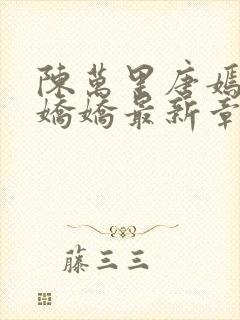 陳萬里唐嫣
嬌嬌最新章
藤三三